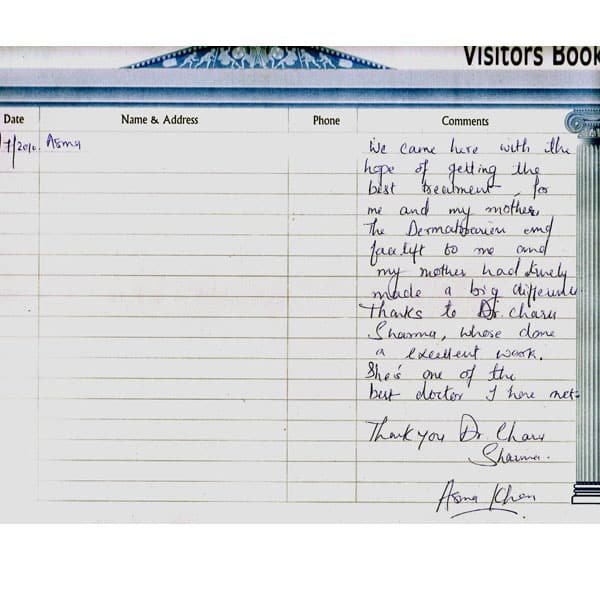 Visitors Book
Date Name & Address Phone Comments
7/2010. Asma We came here with the
hope of getting the
best treatment, for
me and my mother,
The and
facelift to me and
my mother had
made a big
Thanks to Dr. Charu
Sharma, whose done
a excellent work.
She's one of the
best doctor I have met.
Thank you Dr. Charu
Sharma.
Asma Khan